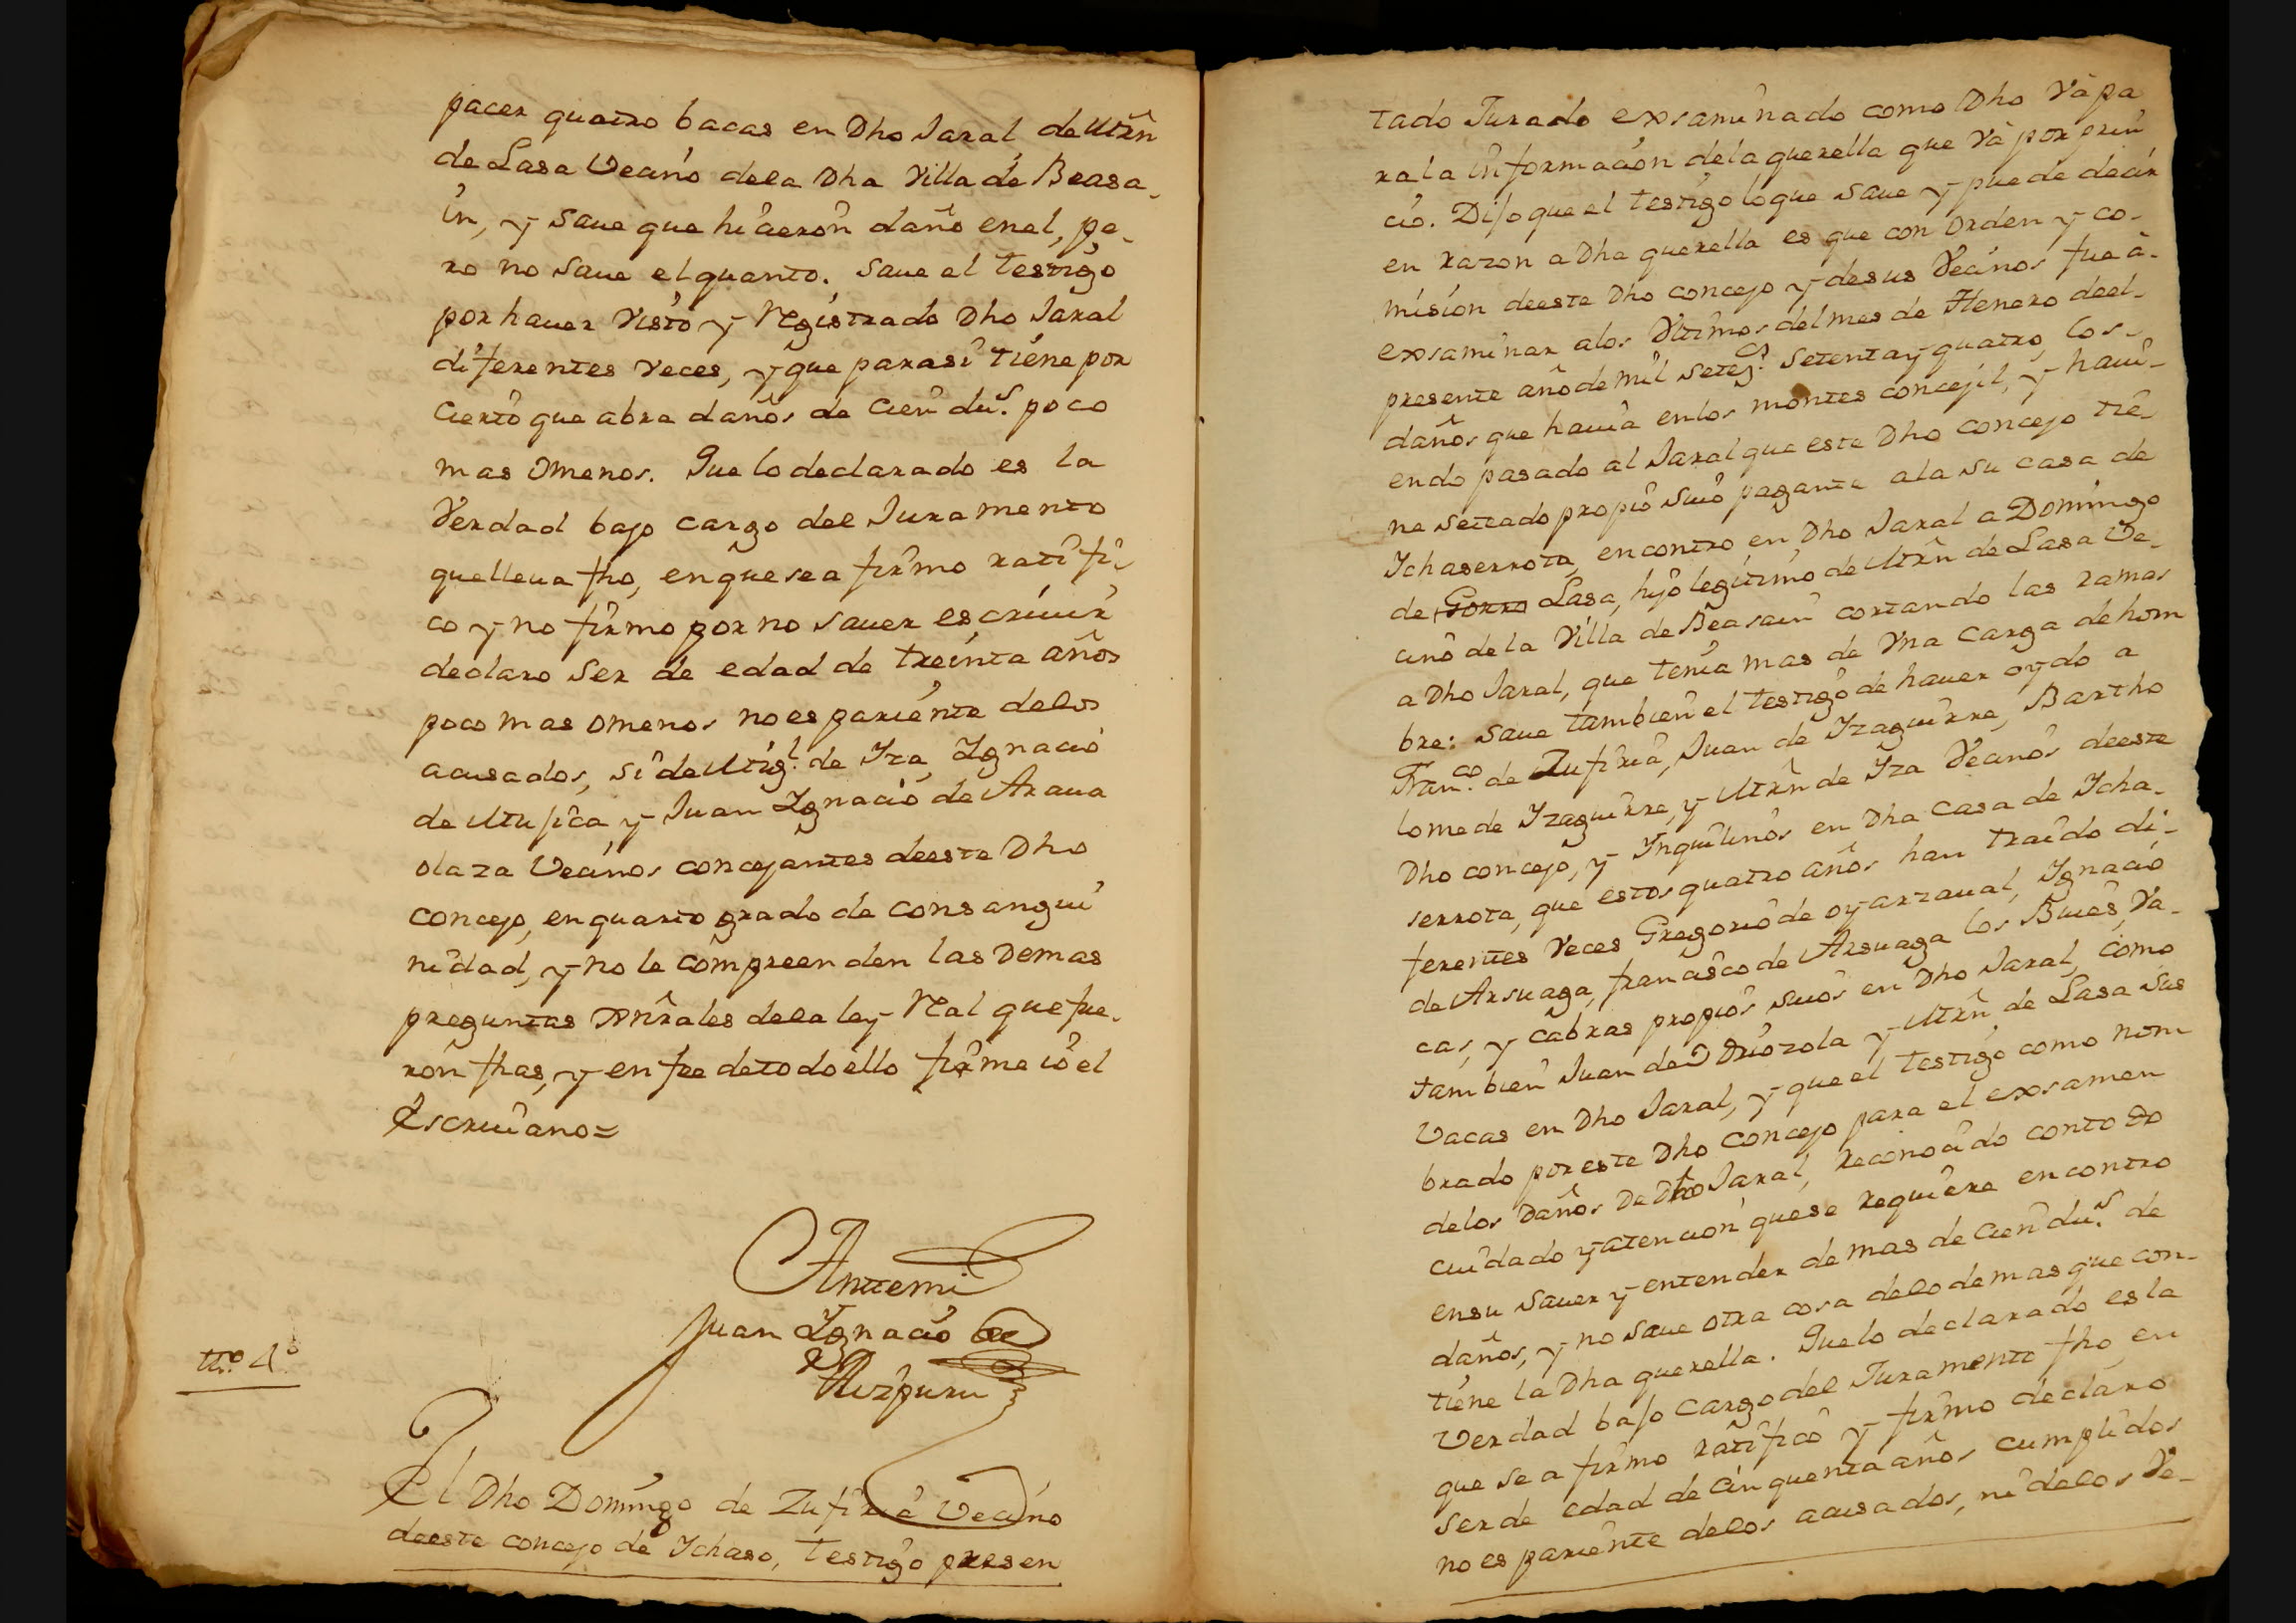 pacer quatro bacas en Dho Jaral, de Mrñ
de Lasa Vecino dela Dha Villa de Beasa-
in, y saue que hicieron daño enel, pe-
ro no saue el quanto. Saue el testigo
por hauer visto y registrado Dho Jaral
diferentes veces, y que parasi tiene por
cierto que abra daños de cien dus. poco
mas omenos. Que lo declarado es la
Verdad bajo cargo del Juramento
quelleua fho, enque sea firmo ratifi-
co y no firmo por no sauer escriuir
declaro ser de edad de treinta años
poco mas omenos no es pariente delos
acusados, si de Migl. de Iza, Ignacio
de Mujica y Juan Ignacio de Araua
olaza Vecinos concejantes deeste Dho
concejo, en quarto grado de consangui
nidad, y no le compreenden las Demas
preguntas Gnrales dela ley Real que fue-
ron fhas, y en fee detodo ello firme io el
Escriuano=
Anttemi
Juan Ignacio de
Aizpuru
tto. 4º
El Dho Domingo de Zufiria Vecino
deeste concejo de Ichaso, testigo presen
tado Jurado exsaminado como Dho Va pa
rala informacion dela querella que Va por prin
cio. Dijo que el testigo loque saue y puede decir
en razon a Dha querella es que con orden y co-
mision deeste Dho concejo y desus Vecinos fue a-
exsaminar alos Vltimos del mes de Henero deel-
presente año de mil seteçs. setenta y quatro, los-
daños que hauia enlos montes concejil, y haui-
endo pasado al Jaral que este Dho concejo tie-
ne setiado propio suio pagante ala su casa de
Ichaserrota, encontro en Dho Jaral a Domingo
de Gorro Lasa, hijo legitimo de Mrñ de Lasa Ve-
cino de la Villa de Beasain cortando las ramas
a Dho Jaral, que tenia mas de Vna carga de hom
bre: saue tambien el testigo de hauer oydo a
Franco. de Zufiria, Juan de Izaguirre, Bartho
lome de Izaguirre, y Mrñ de Iza Vecinos deeste
Dho concejo, y Inquilinos en Dha Casa de Icha-
serrota, que estos quatro años han traido di-
ferentes Veces Gregorio de oyarzaual, Ignacio
de Arsuaga, francisco de Arsuaga los Bues, Va-
cas, y cabras propios suios en Dho Jaral, como
tambien Juan de Vrriozola y Mrñ de Lasa sus
Vacas en Dho Jaral, y que el testigo como nom
brado por este Dho Concejo para el exsamen
delos Daños De Dho Jaral, reconocido contodo
cuidado y atencion quese requiere encontro
ensu sauer y entender de mas de cien dus. de
daños, y no saue otra cosa delo demas que con-
tiene la Dha querella. Quelo declarado es la
Verdad bajo cargo del Juramento fho, en
que se a firmo ratifico y firmo declaro
ser de edad de cinquenta años cumplidos
no es pariente delos acusados, ni delos Ve-